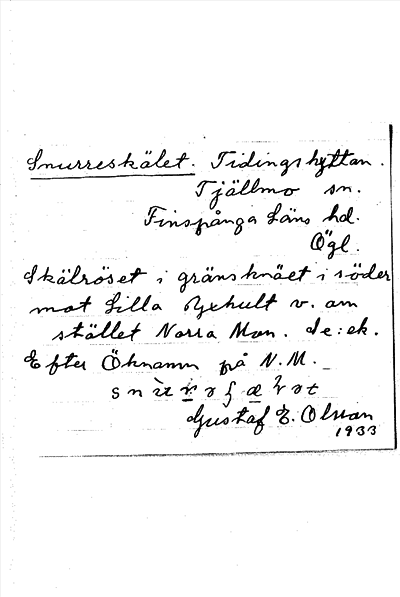 Snurreskälet. Tidingshyttan.
Tjällmo sn.
Finspånga läns hd.
Ögl.
Skälröset i gränsknäet i söder
mot Lilla Yxhult v. om
stället Norra Mon. de: ek.
Efter Öknamn på N.M.
Gustaf E. Olsson
1933